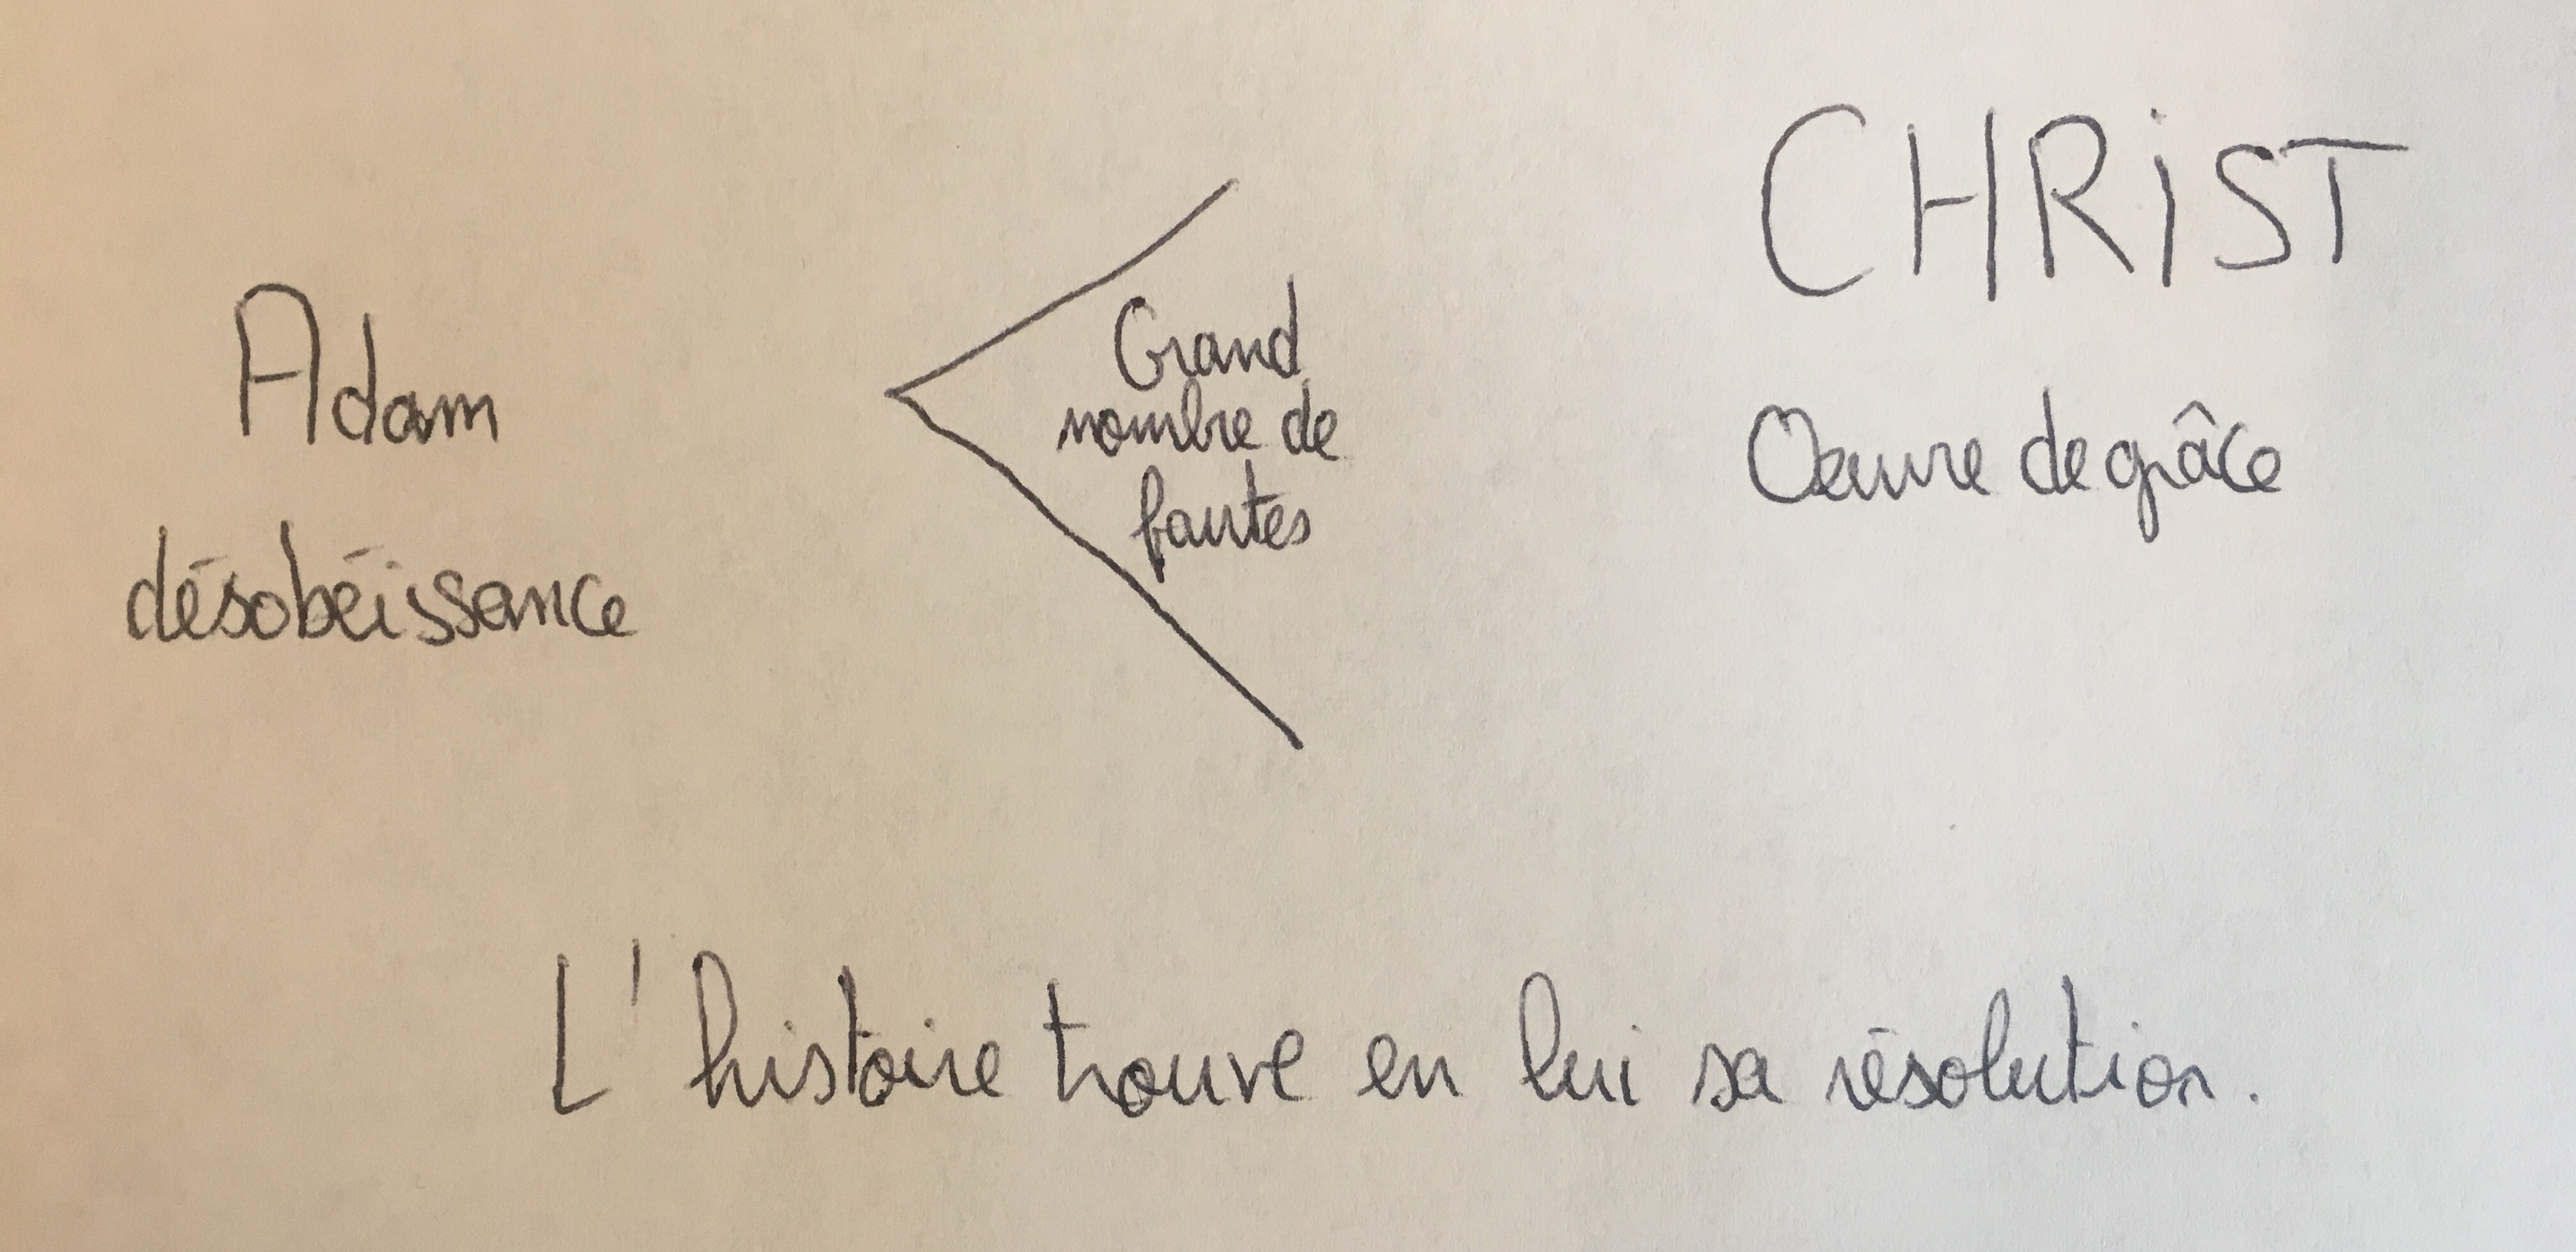 Adam
désobéissance
Grand
nombre de
fautes
CHRiST
Oeuvre de grâce
L'histoire trouve en lui sa résolution.